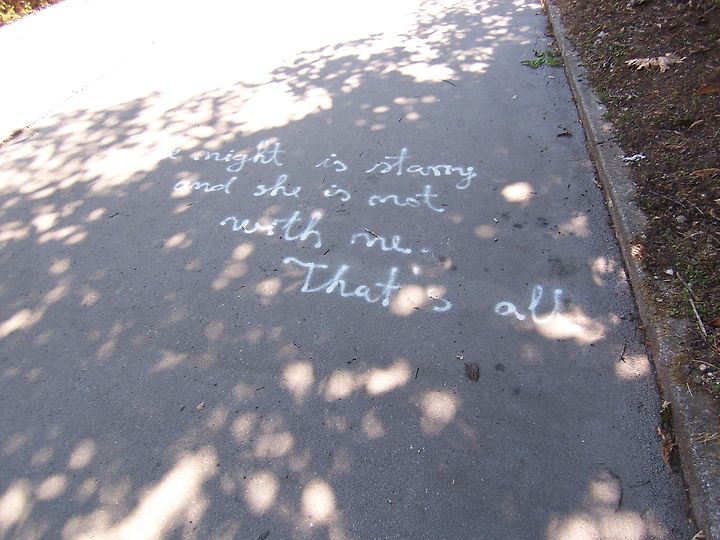 night is starry
and she is not
with me.
That's all